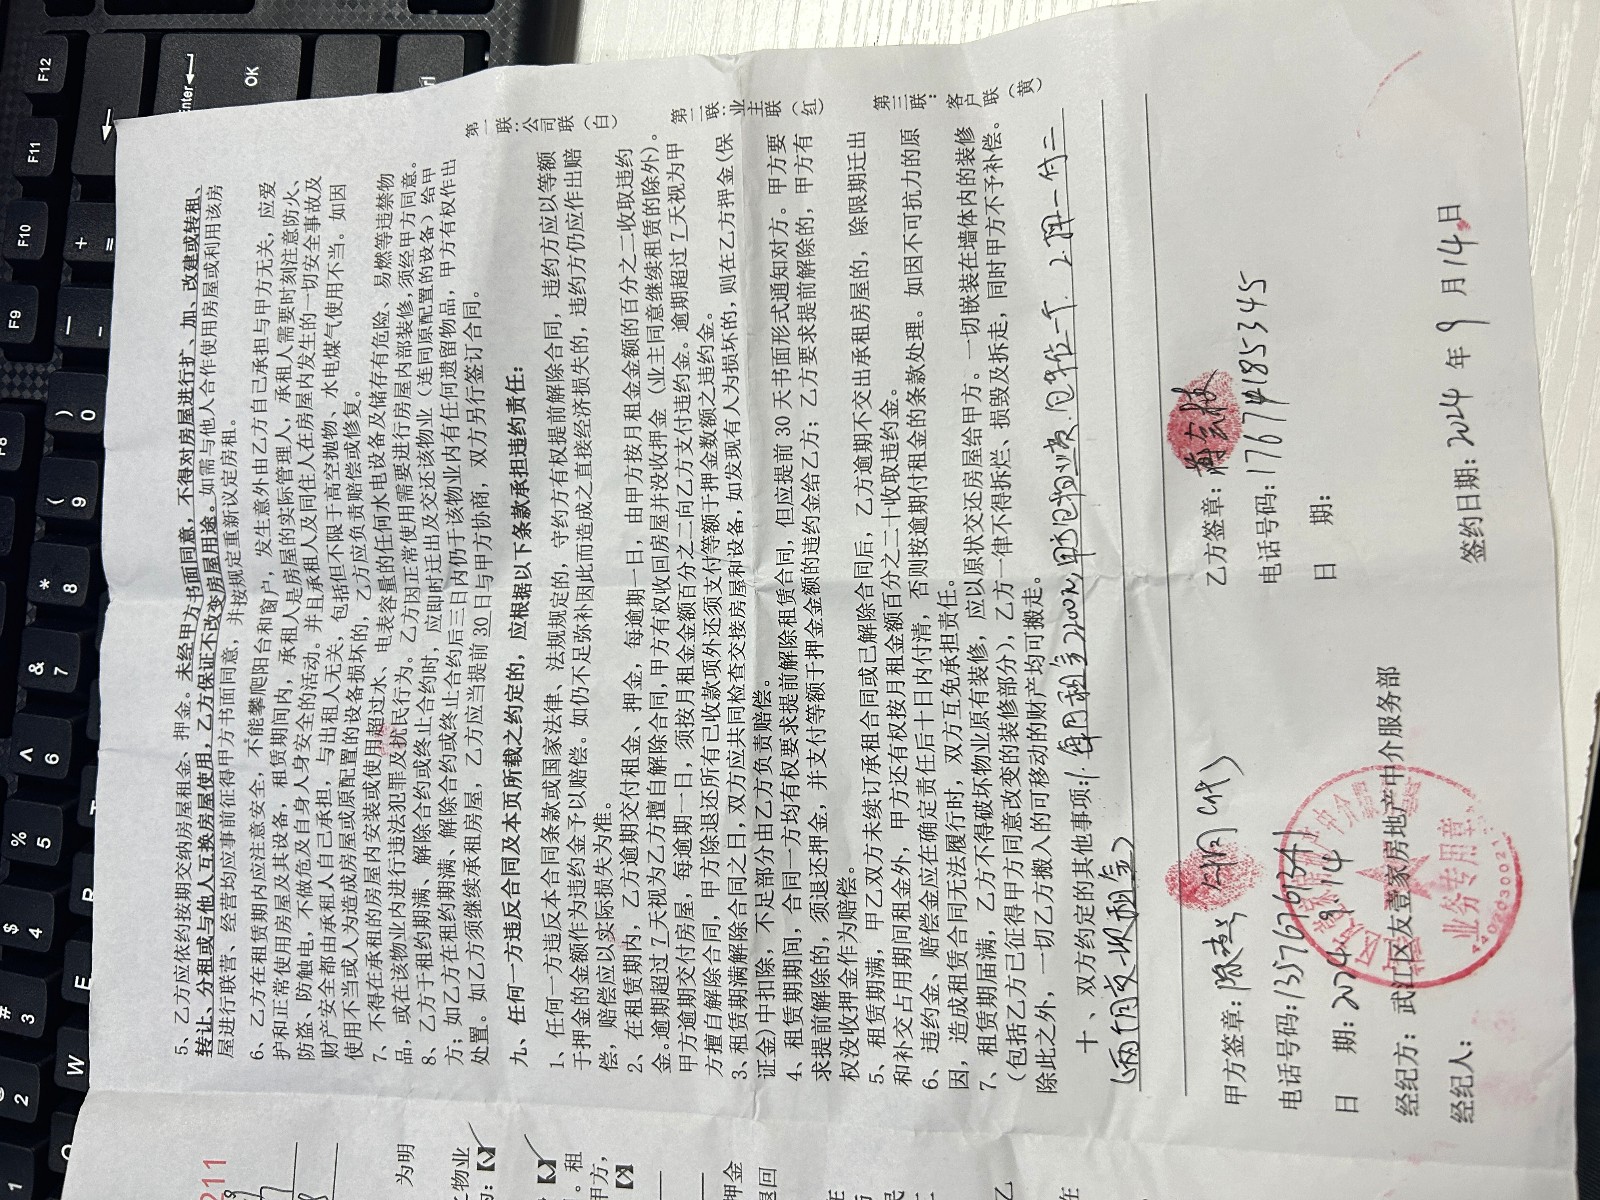 5、乙方应依约按期交纳房屋租金、押金。未经甲方书面同意，不得对房屋进行扩、加、改建或转租、
转让、分租或与他人互换房屋使用，乙方保证不改变房屋用途。如需与他人合作使用房屋或利用该房
屋进行联营、经营均应事前征得甲方书面同意，并按规定重新议定房租。
6、乙方在租赁期内应注意安全，不能攀爬阳台和窗户，发生意外由乙方自己承担与甲方无关，应爱
护和正常使用房屋及其设备，租赁期间内，承租人是房屋的实际管理人，承租人需要时刻注意防火、
防盗、防触电，不做危及自身人身安全的活动。并且承租人及同住人在房屋内发生的一切安全事故及
财产安全都由承租人自己承担，与出租人无关，包括但不限于高空抛物、水电煤气使用不当。如因
使用不当或人为造成房屋或原配置的设备损坏的，乙方应负责赔偿或修复。
7、不得在承租的房屋内安装或使用超过水、电表容量的任何水电设备及储存有危险、易燃等违禁物
品，或在该物业内进行违法犯罪及扰民行为。乙方因正常使用需要进行房屋内部装修，须经甲方同意。
8、乙方于租约期满、解除合约或终止合约时，应即时迁出及交还该物业（连同原配置的设备）给甲
方；如乙方在租约期满、解除合约或终止合约后三日内仍于该物业内有任何遗留物品，甲方有权作出
处置。如乙方须继续承租房屋，乙方应当提前 30 日与甲方协商，双方另行签订合同。
九、任何一方违反合同及本页所载之约定的，应根据以下条款承担违约责任：
1、任何一方违反本合同条款或国家法律、法规规定的，守约方有权提前解除合同，违约方应以等额
于押金的金额作为违约金予以赔偿。如仍不足弥补因此而造成之直接经济损失的，违约方仍应作出赔
偿，赔偿应以实际损失为准。
2、在租赁期内，乙方逾期交付租金、押金，每逾期一日，由甲方按月租金金额的百分之二收取违约
金。逾期超过 7 天视为乙方擅自解除合同，甲方有权收回房屋并没收押金（业主同意继续租赁的除外）。
甲方逾期交付房屋，每逾期一日，须按月租金金额百分之二向乙方支付违约金。逾期超过 7 天视为甲
方擅自解除合同，甲方除退还所有已收款项外还须支付等额于押金数额之违约金。
3、租赁期满解除合同之日，双方应共同检查交接房屋和设备，如发现有人为损坏的，则在乙方押金（保
证金）中扣除，不足部分由乙方负责赔偿。
4、租赁期期间，合同一方均有权要求提前解除租赁合同，但应提前 30 天书面形式通知对方。甲方要
求提前解除的，须退还押金，并支付等额于押金金额的违约金给乙方；乙方要求提前解除的，甲方有
权没收押金作为赔偿。
5、租赁期满，甲乙双方未续订承租合同或已解除合同后，乙方逾期不交出承租房屋的，除限期迁出
和补交占用期间租金外，甲方还有权按月租金额百分之二十收取违约金。
6、违约金、赔偿金应在确定责任后十日内付清，否则按逾期付租金的条款处理。如因不可抗力的原
因，造成租赁合同无法履行时，双方互免承担责任。
7、租赁期届满，乙方不得破坏物业原有装修，应以原状交还房屋给甲方。一切嵌装在墙体内的装修
（包括乙方已征得甲方同意改变的装修部分），乙方一律不得拆烂、损毁及拆走，同时甲方不予补偿。
除此之外，一切乙方搬入的可移动的财产均可搬走。
十、双方约定的其他事项：1.每月租金2200元，
（两个月交一次租金）
第一联：公司联（白）
第二联：业主联（红）
第三联：客户联（黄）
甲方签章：
电话号码：13576769341
日 期：2024.9.14
经纪方：武江区友壹家房地产中介服务部
经纪人：
业务专用章
乙方签章：
电话号码：17674185345
日 期：
签约日期：2024 年 9 月 14 日
211
为明
物业
租
甲方，
押金
退回